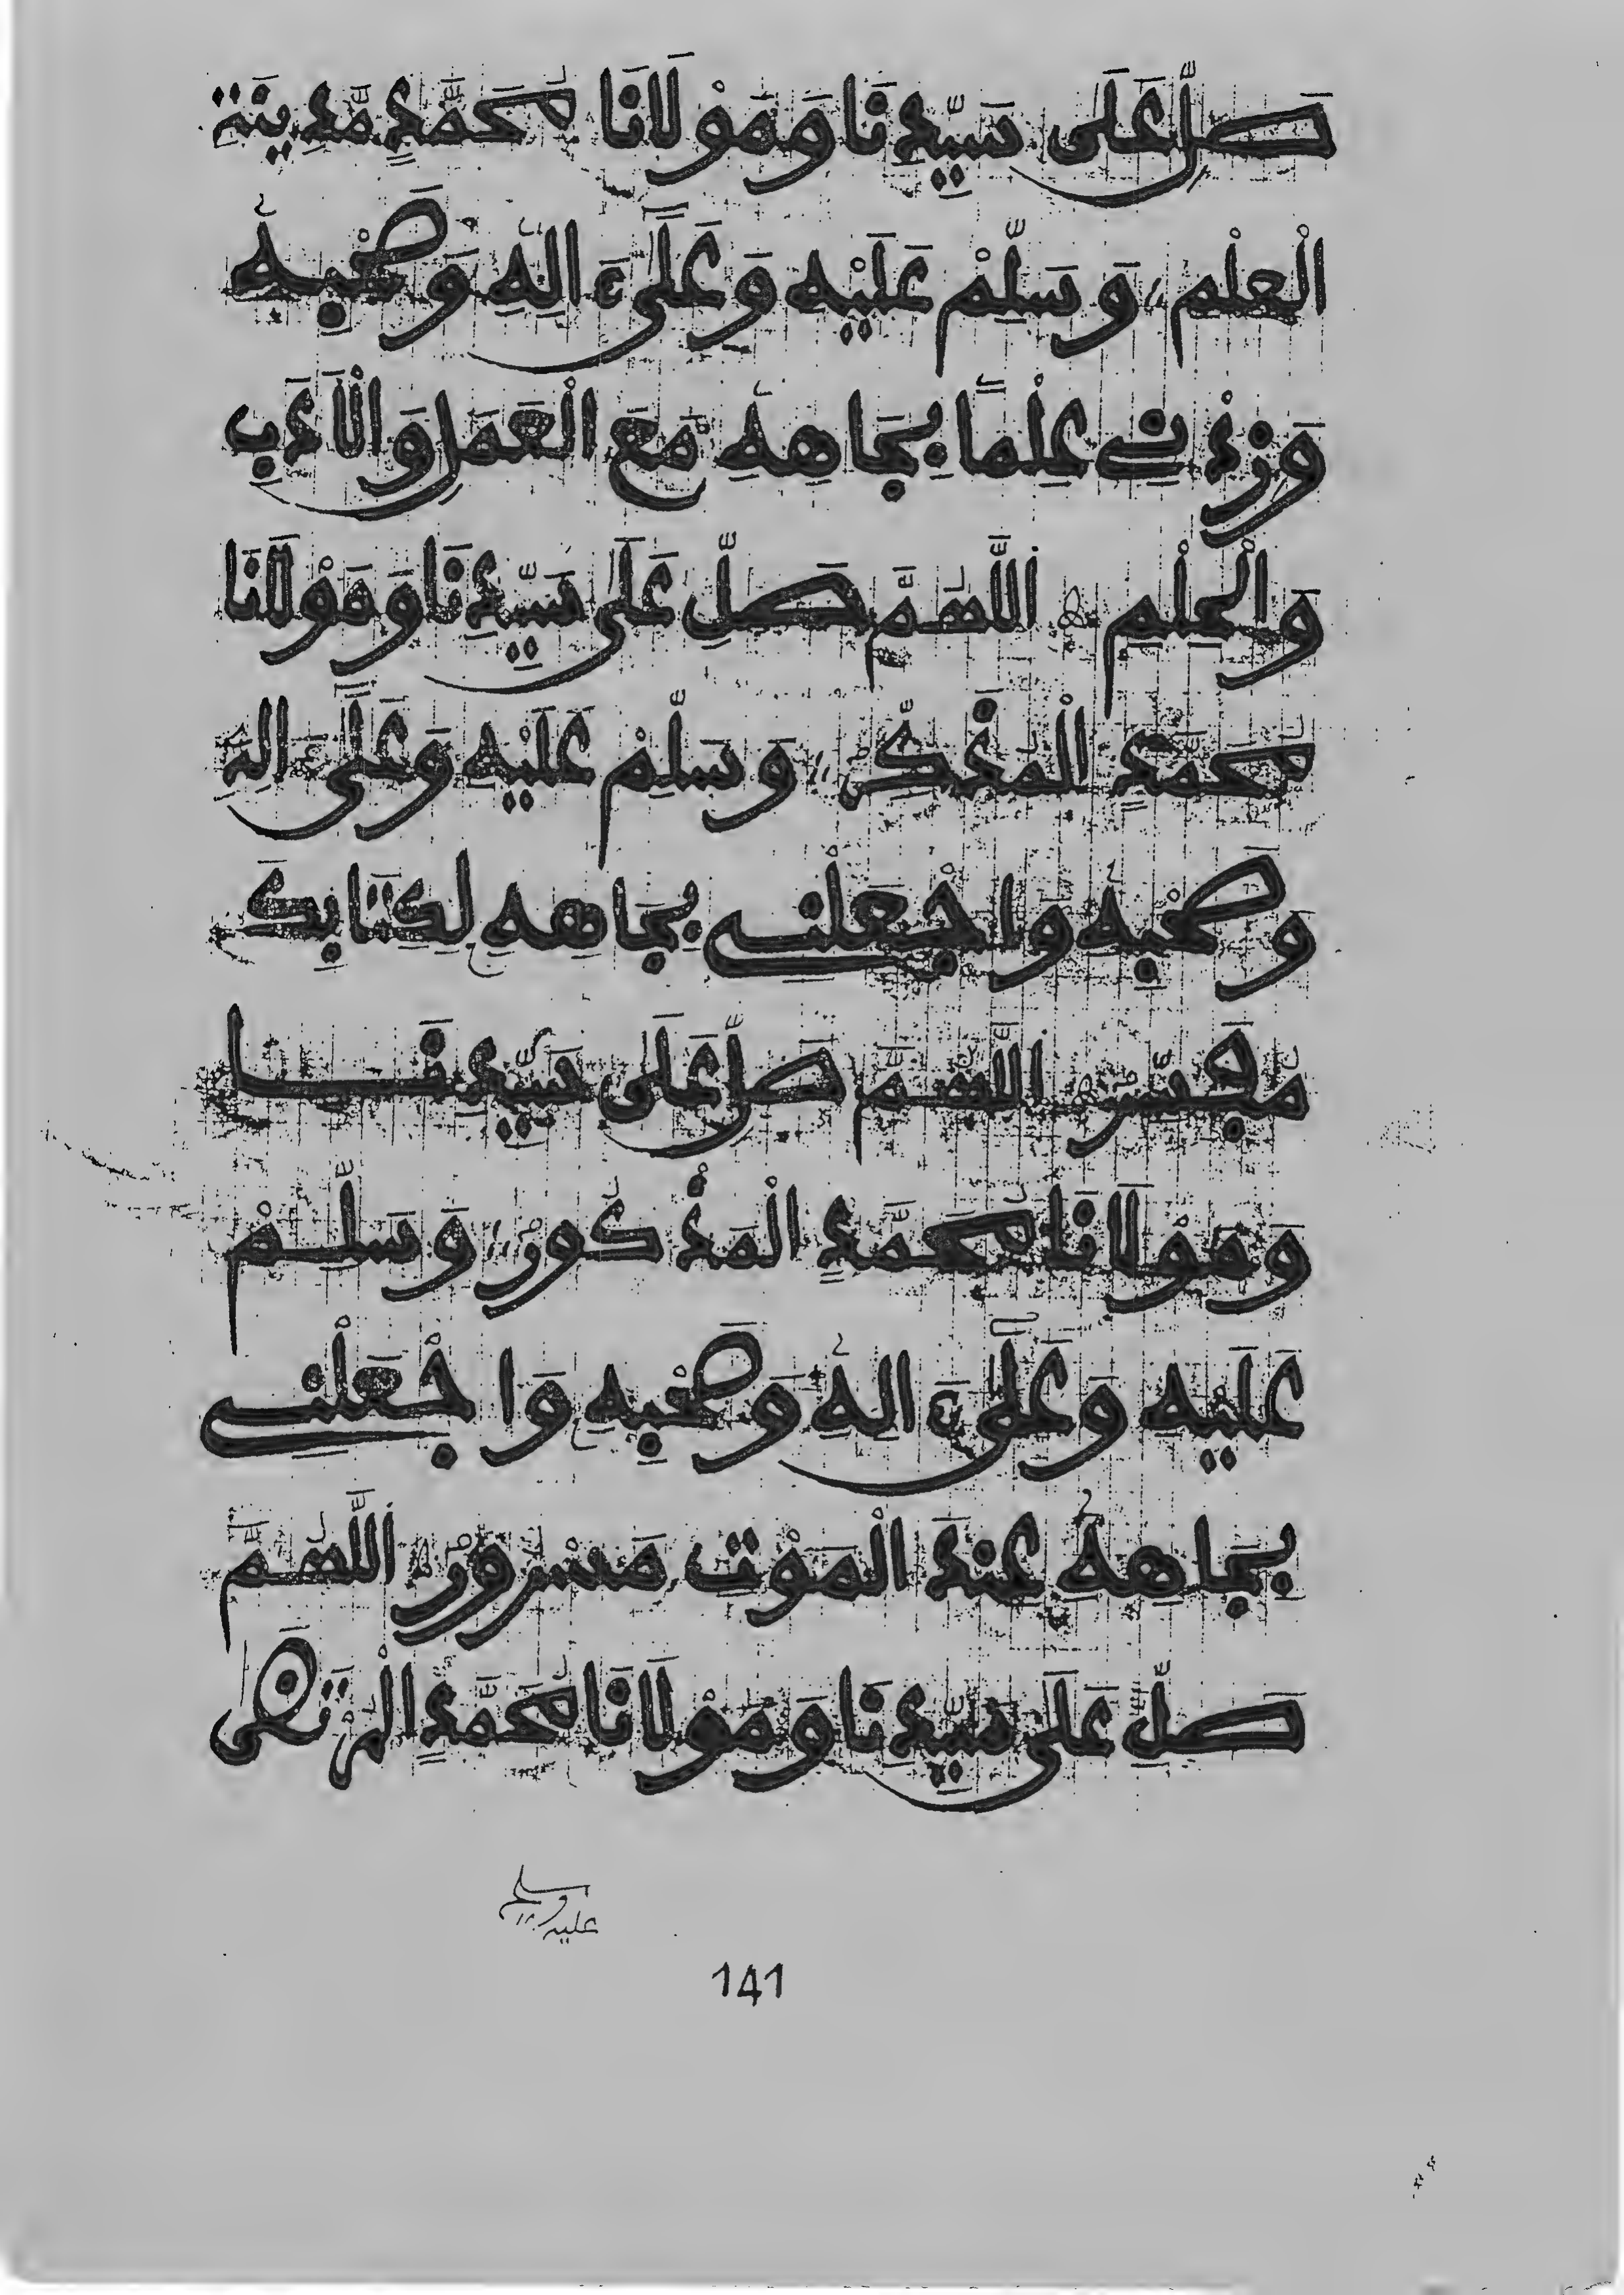 صَلِّ عَلَى سَيِّدِنَا وَمَوْلَانَا مُحَمَّدٍ مَّدِينَةِ
الْعِلْمِ، وَسَلِّمْ عَلَيْهِ وَعَلَىٰ ءَالِهِ وَصَحْبِهِ
وَزِدْنِي عِلْماً بِجَاهِهِ مَعَ الْعَمَلِ وَالْأَدَبِ
وَالْحِلْمِ اللَّهُمَّ صَلِّ عَلَى سَيِّدِنَا وَمَوْلَانَا
مُحَمَّدٍ الْمُذَكِّرِ، وَسَلِّمْ عَلَيْهِ وَعَلَىٰ ءَالِهِ
وَصَحْبِهِ وَاجْعَلْنِي بِجَاهِهِ لِكِتَابِكَ
مُفَسِّر اللَّهُمَّ صَلِّ عَلَى سَيِّدِنَا
وَمَوْلَانَا مُحَمَّدٍ الْمَذْكُورِ، وَسَلِّمْ
عَلَيْهِ وَعَلَىٰ ءَالِهِ وَصَحْبِهِ وَاجْعَلْنِي
بِجَاهِهِ عِندَ الْمَوْتِ مَسْرُور اللَّهُمَّ
صَلِّ عَلَى سَيِّدِنَا وَمَوْلَانَا مُحَمَّدٍ الْمُرْتَضَى
عليه وسلم
141